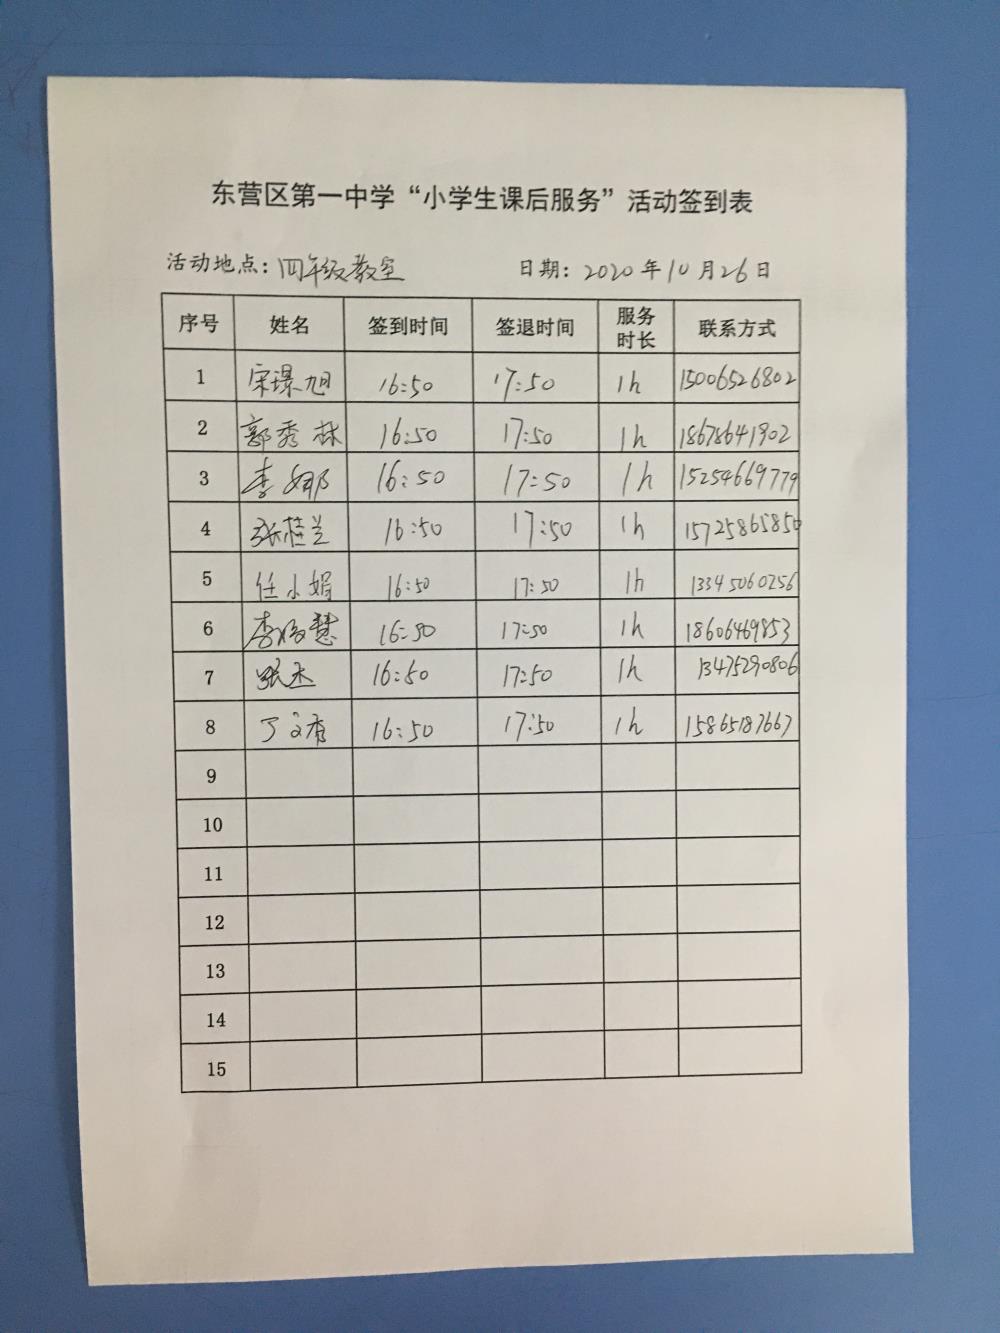 东营区第一中学“小学生课后服务”活动签到表
活动地点：四年级教室 日期：2020年10月26日
序号 姓名 签到时间 签退时间 服务时长 联系方式
1 宋璟旭 16:50 17:50 1h 15006526802
2 郭秀林 16:50 17:50 1h 18678641902
3 李娜 16:50 17:50 1h 15254669779
4 张桂兰 16:50 17:50 1h 15725865850
5 任小娟 16:50 17:50 1h 13345060256
6 16:50 17:50 1h 18606469853
7 张杰 16:50 17:50 1h 13475290806
8 丁文秀 16:50 17:50 1h 15865187667
9
10
11
12
13
14
15